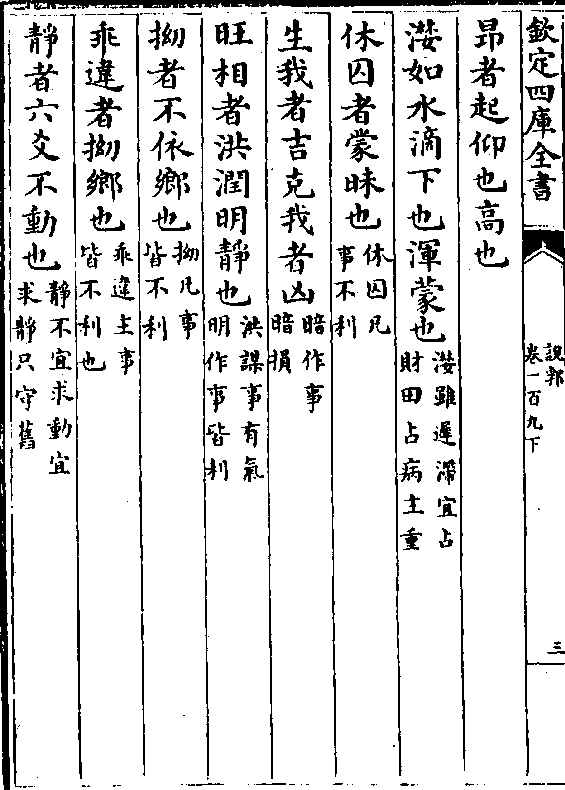 欽定四庫全書
説郛
卷一百九下
三
昂者起仰也高也
漤如水滴下也渾蒙也漤雖遲滯宜占財田占病主重
休囚者蒙昧也休囚凡事不利
生我者吉克我者凶暗作事暗損
旺相者洪潤明靜也洪謀事有氣明作事皆利
拗者不依鄉也拗凡事皆不利
乖違者拗鄉也乖違主事皆不利也
靜者六爻不動也靜不宜求動宜求靜只守舊